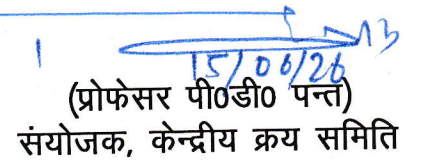 15/06/26
(प्रोफेसर पी0डी0 पन्त)
संयोजक, केन्द्रीय क्रय समिति